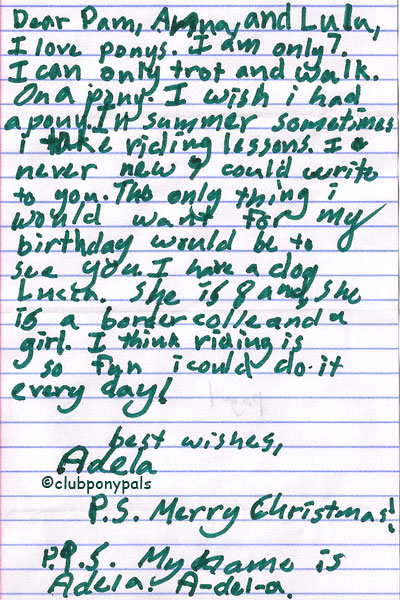 Dear Pam, Anna, and Lulu,
I love ponys. I am only 7.
I can only trot and walk.
On a pony. I wish i had
a pony. In summer sometimes
i take riding lessons. I
never new I could write
to you. The only thing i
would want for my
birthday would be to
see you. I have a dog
Lucia. She is 8 and she
is a border colle and a
girl. I think riding is
so fun i could do it
every day!
best wishes,
Adela
©clubponypals
P.S. Merry Christmas!
P.P.S. My name is
Adela. A-del-a.